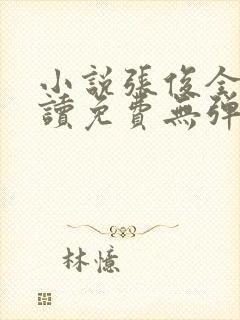 小說張俊全
讀免費無彈
林憶